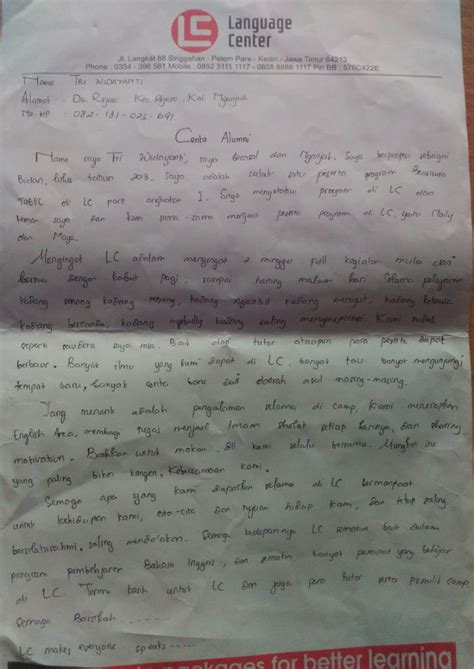 LC Language
Center
Jl. Langkat 88 Singgahan - Pelem Pare - Kediri - Jawa Timur 64213
Phone : 0354 - 396 561 Mobile : 0852 3111 1117 - 0858 6588 1117 Pin BB : 576C422E
Nama : TRI WIDAYANTI
Alamat : Ds. Rejoso Kec. Rejoso, Kab. Nganjuk
No. HP : 082-131-023-691
Cerita Alumni
Nama saya Tri Widayanti, saya berasal dari Nganjuk. Saya berprofesi sebagai
Bidan, lulus tahun 2013. Saya adalah salah satu peserta program Beasiswa
TOEFL di LC pare angkatan I. Saya mengetahui program di LC dari
teman saya dan kami sama-sama menjadi peserta program di LC, yaitu
dan Mega.
Mengingat LC adalah mengingat 2 minggu full kegiatan mulai dari
dengan kabut pagi, sampai hening malam hari. Selama pelajaran
kadang senang kadang tenang, kadang kadang, kadang ketawa
kadang bercanda, kadang ngebully kadang saling menginspirasi. Kami sudah
seperti saudara saja rasa. Baik dari tutor ataupun para peserta dapat
berbaur. Banyak ilmu yang kami dapat di LC, banyak tau banyak mengunjungi
tempat baru, banyak cerita baru dari daerah asal masing-masing.
Yang menarik adalah pengalaman selama di camp, kami menerapkan
English Area, membagi tugas menjadi Imam sholat setiap harinya, dan sharing
motivation. Bahkan untuk makan kami selalu bersama. Mungkin itu
yang paling bikin kangen, Kebersamaan kami.
Semoga apa yang kami dapatkan selama di LC bermanfaat
untuk kehidupan kami, cita-cita dan tujuan hidup kami, dan tetap saling
bersilaturahmi, saling mendoakan. Semoga kedepannya LC semakin baik dalam
program pembelajaran Bahasa Inggris, dan semakin banyak peminat yang belajar
di LC. Terima kasih untuk LC dan juga para tutor serta pemilik camp
Semoga Barokah .....
LC makes everyone speaks .....
packages for better learning